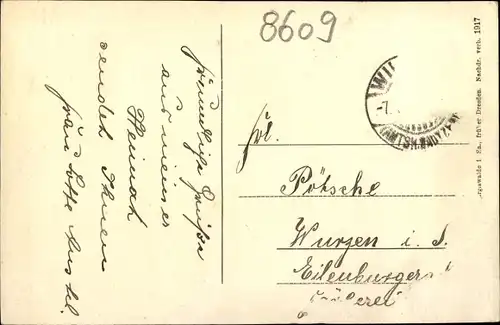 8609
freundliche Grüße
aus meiner
Heimat
sendet Ihnen
WIL
-7.
Frl.
Pötsche
Wurzen i. S.
Eilenburger
früher Dresden. Nachdr. verb. 1917